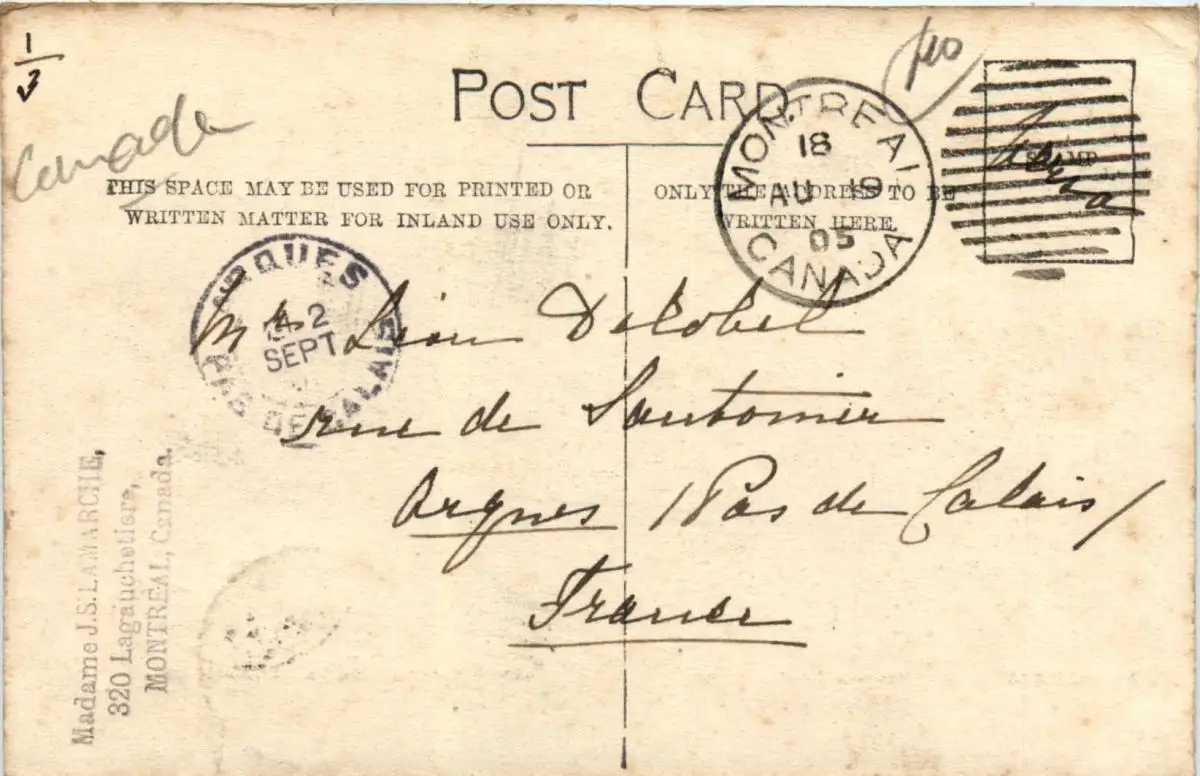 1
3
Canada
POST CARD
THIS SPACE MAY BE USED FOR PRINTED OR
WRITTEN MATTER FOR INLAND USE ONLY.
ONLY THE ADDRESS TO BE
WRITTEN HERE
STAMP
MONTREAL
18
AU 19
05
CANADA
ARQUES
2
SEPT
PAS DE CALAIS
Léon Delobel
rue de Sautomer
Arques (Pas de Calais)
France
Madame J.S. LAMARCHE,
320 Lagauchetiere,
MONTREAL, Canada.